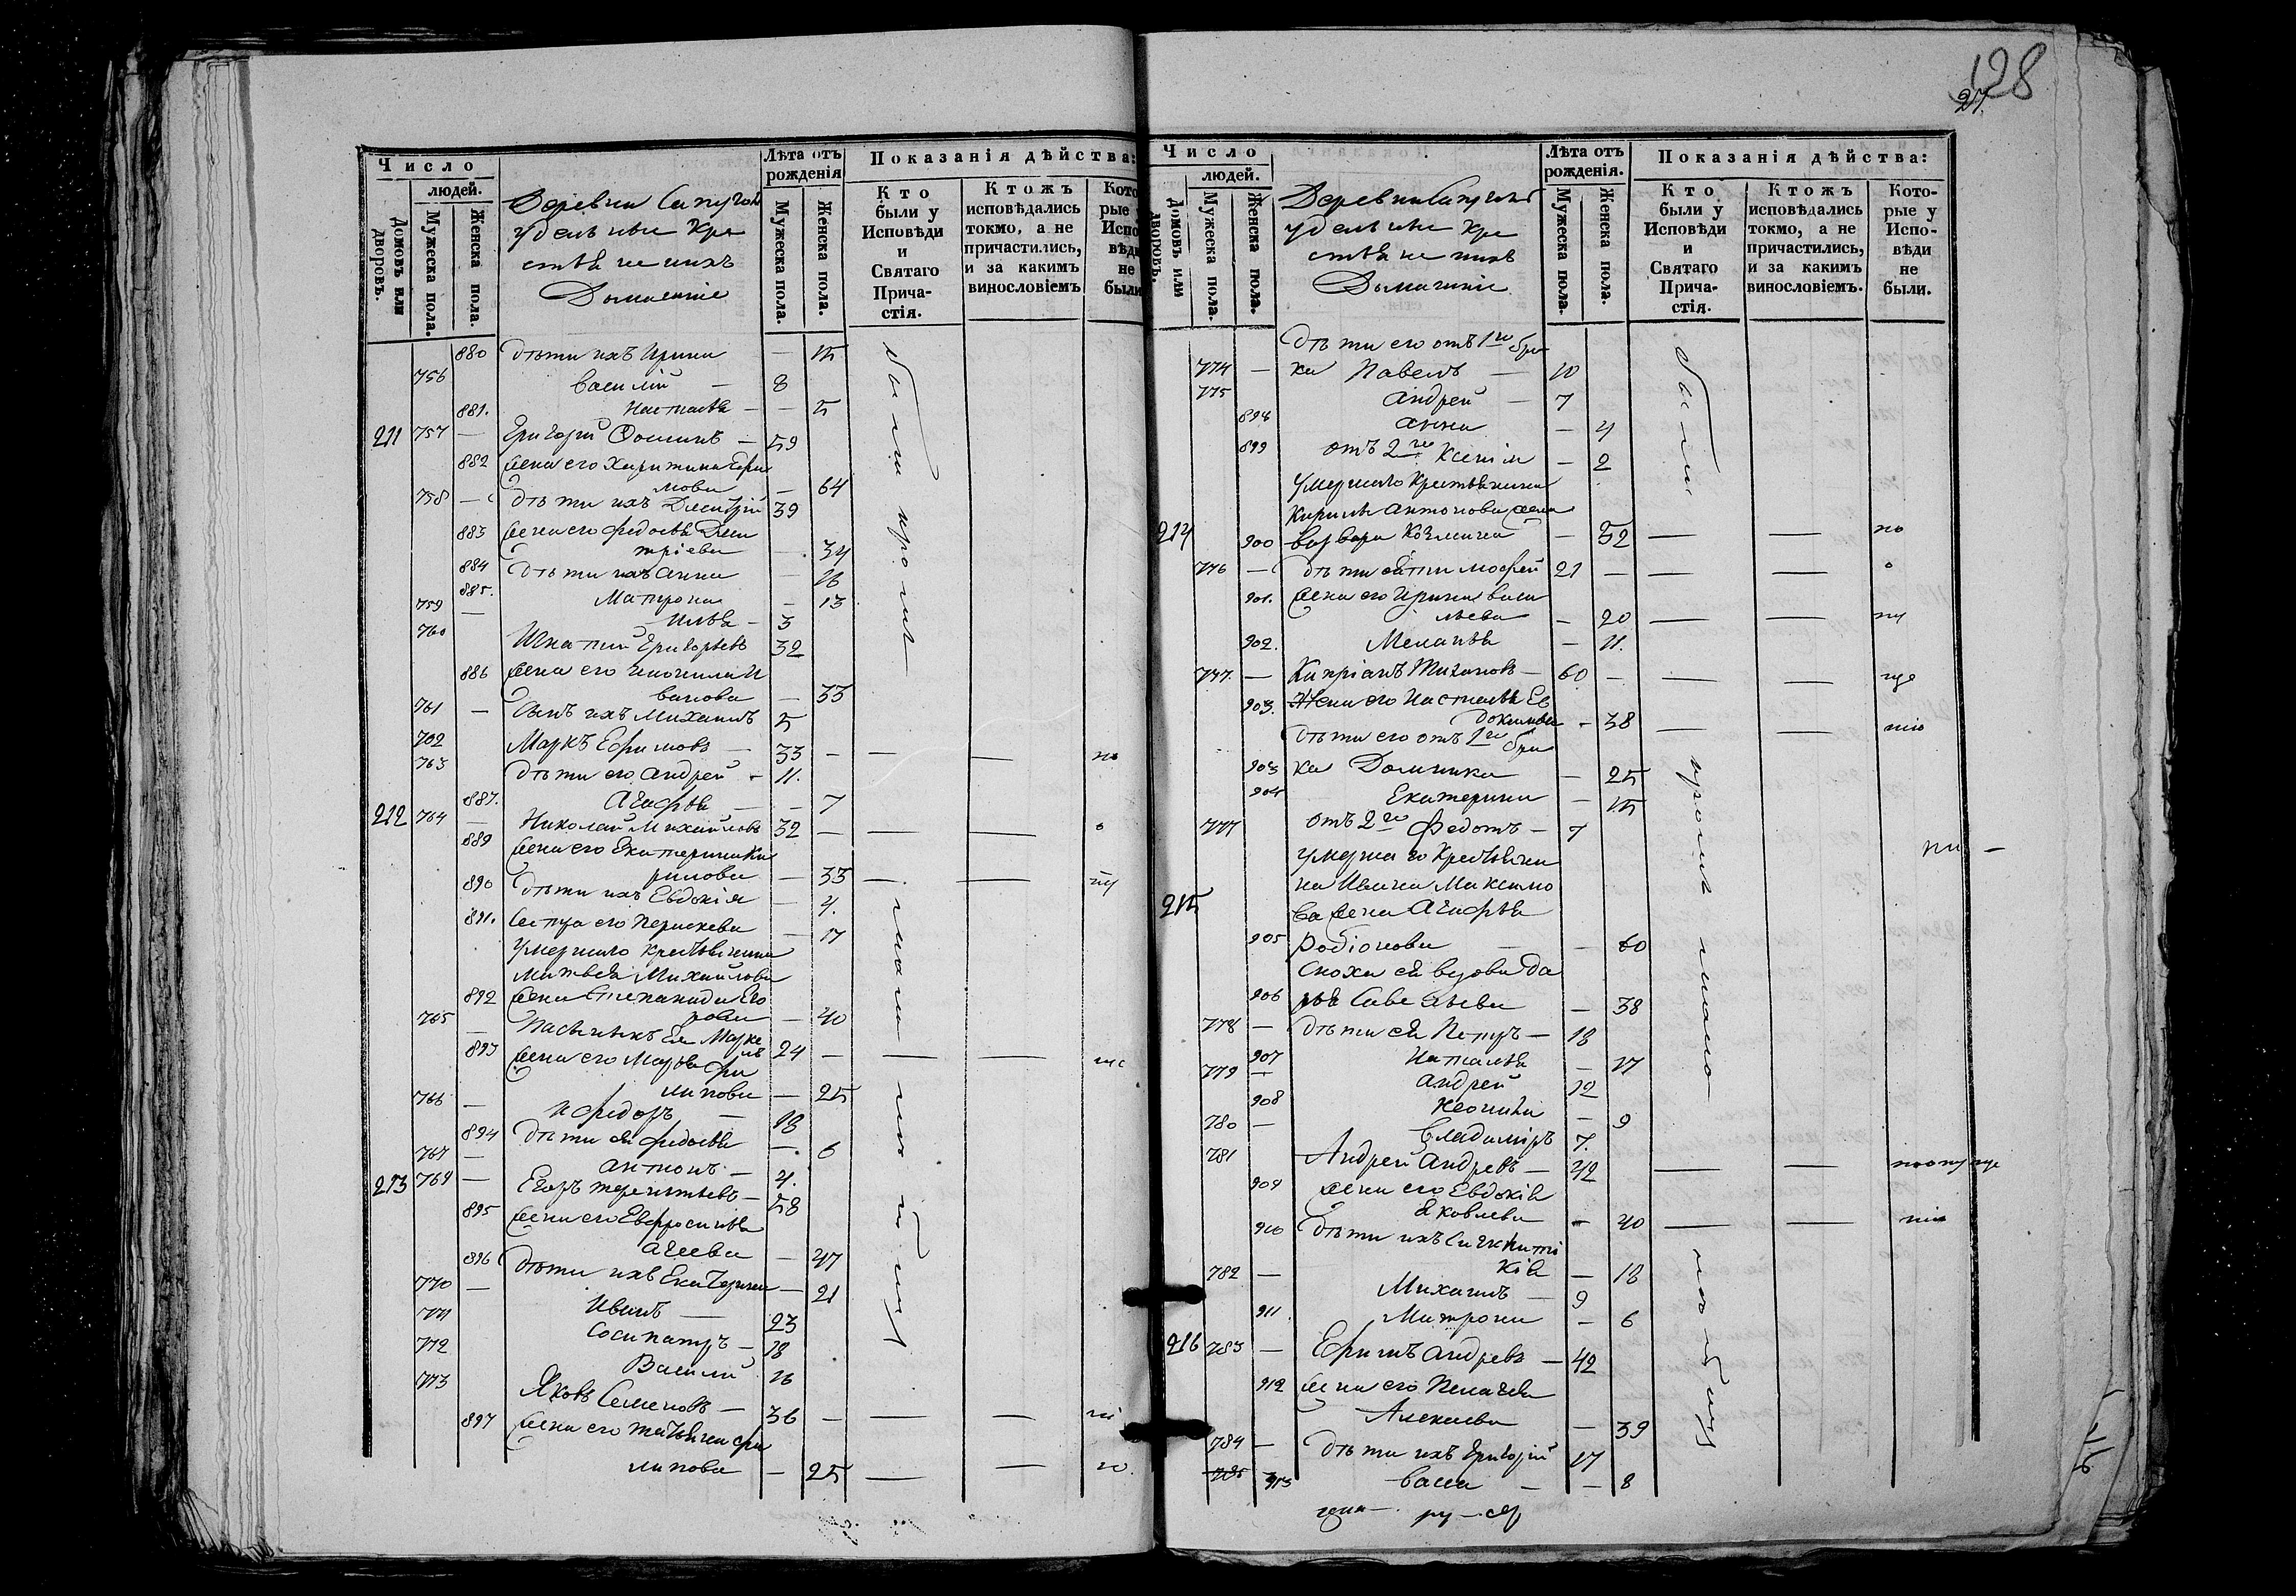 128
27.
Число
людей.
Домовъ или дворовъ.
Мужеска пола.
Женска пола.
Деревни
удельные кре
стьяне и ихъ
Домашніе
Лѣта отъ рожденія
Мужеска пола.
Женска пола.
Показанія дѣйства:
Кто были у Исповѣди и Святаго Прича-стія.
Ктожъ исповѣдались токмо, а не причастились, и за какимъ винословіемъ
880 Дѣти ихъ Ирина — 15
756 Василій — 8
881. Наталья — — 5
211 757 — Григорій Фоминъ — 59
882 жена его Харитина Ефри
мова — 64
758 — дѣти ихъ Дмитрій 39
883 жена его Федосья Дми
тріева — 34
884 Дѣти ихъ Анна — 16
885. Матрона — 13
759 — Илья — 3
760 Игнатій Григорьевъ 32
886 жена его И
ванова — 33
761 — Сынъ ихъ Михаилъ 5
762 Маркъ Ефимовъ — 33 — — —
763 Дѣти его Андрей - 11.
887. Агафья — — 7
212 764 — Николай Михайловъ 32 — — —
889 жена его Екатерина Ки
рилова — 33 — —
890 Дѣти ихъ Евдокія — 4.
891. Сестра его Параскева — 17
Умершаго крестьянина
Матвея Михайлова
892 жена Степанида Его
рова — 40
765 — Пасынокъ Ея Марке
лъ 24 — — —
893 жена его Марья Фи
липова — 25
766 — и Федоръ — 18
894 Дѣти ея Федосья — 6
767 — Антонъ — 4.
213 769 — Егоръ Терентьевъ — 58
895 жена его Евфросинья
Агеева — 47
896 Дѣти ихъ Екатерина — 21
770 — Иванъ — 23
771 Сосипатръ — 18
772 Василій 16
773 Яковъ Семеновъ — 36 — — —
897 жена его Татьяна Фи
липова — 25 — —
были кромѣ
Число
людей.
Домовъ или дворовъ.
Мужеска пола.
Женска пола.
Деревни
удельные кре
стьяне и ихъ
Домашніе
Лѣта отъ рожденія.
Мужеска пола.
Женска пола.
Показанія дѣйства:
Кто были у Исповѣди и Святаго Прича-стія.
Ктожъ исповѣдались токмо, а не причастились, и за какимъ винословіемъ.
Кото-рые у Испо-вѣди не были.
Дѣти его отъ 1го бра
774 — ка Павелъ — 10
775 Андрей — 7
898 Анна — 4
899 отъ 2го Ксенія — 2
Умершаго Крестьянина
Кирила Антонова жена
214 900 Варвара Козмина — 52 — — по
776 — дѣти ея Тимофей 21 — — —
901. жена его Ирина Васи
льева — 20 — —
902. Меланья — 11.
777. — Кипріанъ Тихановъ — 60 — — —
903. Жена его Настасья Ев
докимова - 38 — —
дѣти его отъ 1го бра
903 ка Домника — 25
904 Екатерина — 15
777 отъ 2го Федотъ — 7
умершаго Крестьяни
на Ивана Максимо
215 ва жена Агафья
905 Родіонова — — 60
Сноха ея вдова Да
906 рья Савельева — 38
778 — Дѣти ея Петръ — 18
907 Наталья — 17
779 — Андрей 12
908 — 9
780 — Владиміръ 7.
781 Андрей Андревъ — 42 — —
909 жена его Евдокія
Яковлева - 40 — —
910 Дѣти ихъ
— 18
782 — Михаилъ — 9
911 Матрона — 6
216 783 — Ефимъ Андревъ — 42
912 жена его Пелагея
Алексѣева — 39
784 — Дѣти ихъ Григорій 17
785 913 Васса — — 8
были кромѣ